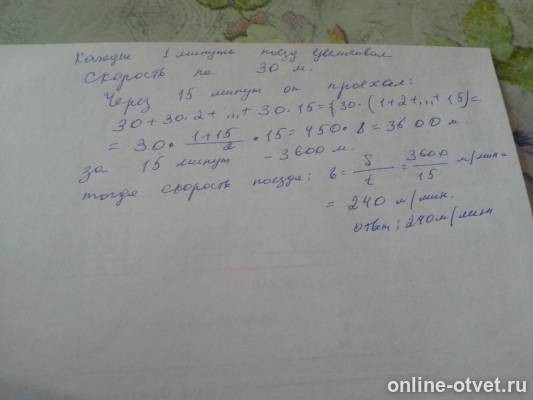 Каждые 1 минуту поезд увеличивал
скорость на 30 м.
Через 15 минут он проехал:
30 + 30·2 + ,,, + 30·15 = {30·(1+2+,,,+15) =
= 30 · \frac{1+15}{2} · 15 = 450 · 8 = 3600 м
за 15 минут - 3600 м.
тогда скорость поезда: v = \frac{S}{t} = \frac{3600}{15} м/мин =
= 240 м/мин.
ответ: 240 м/мин
online-otvet.ru